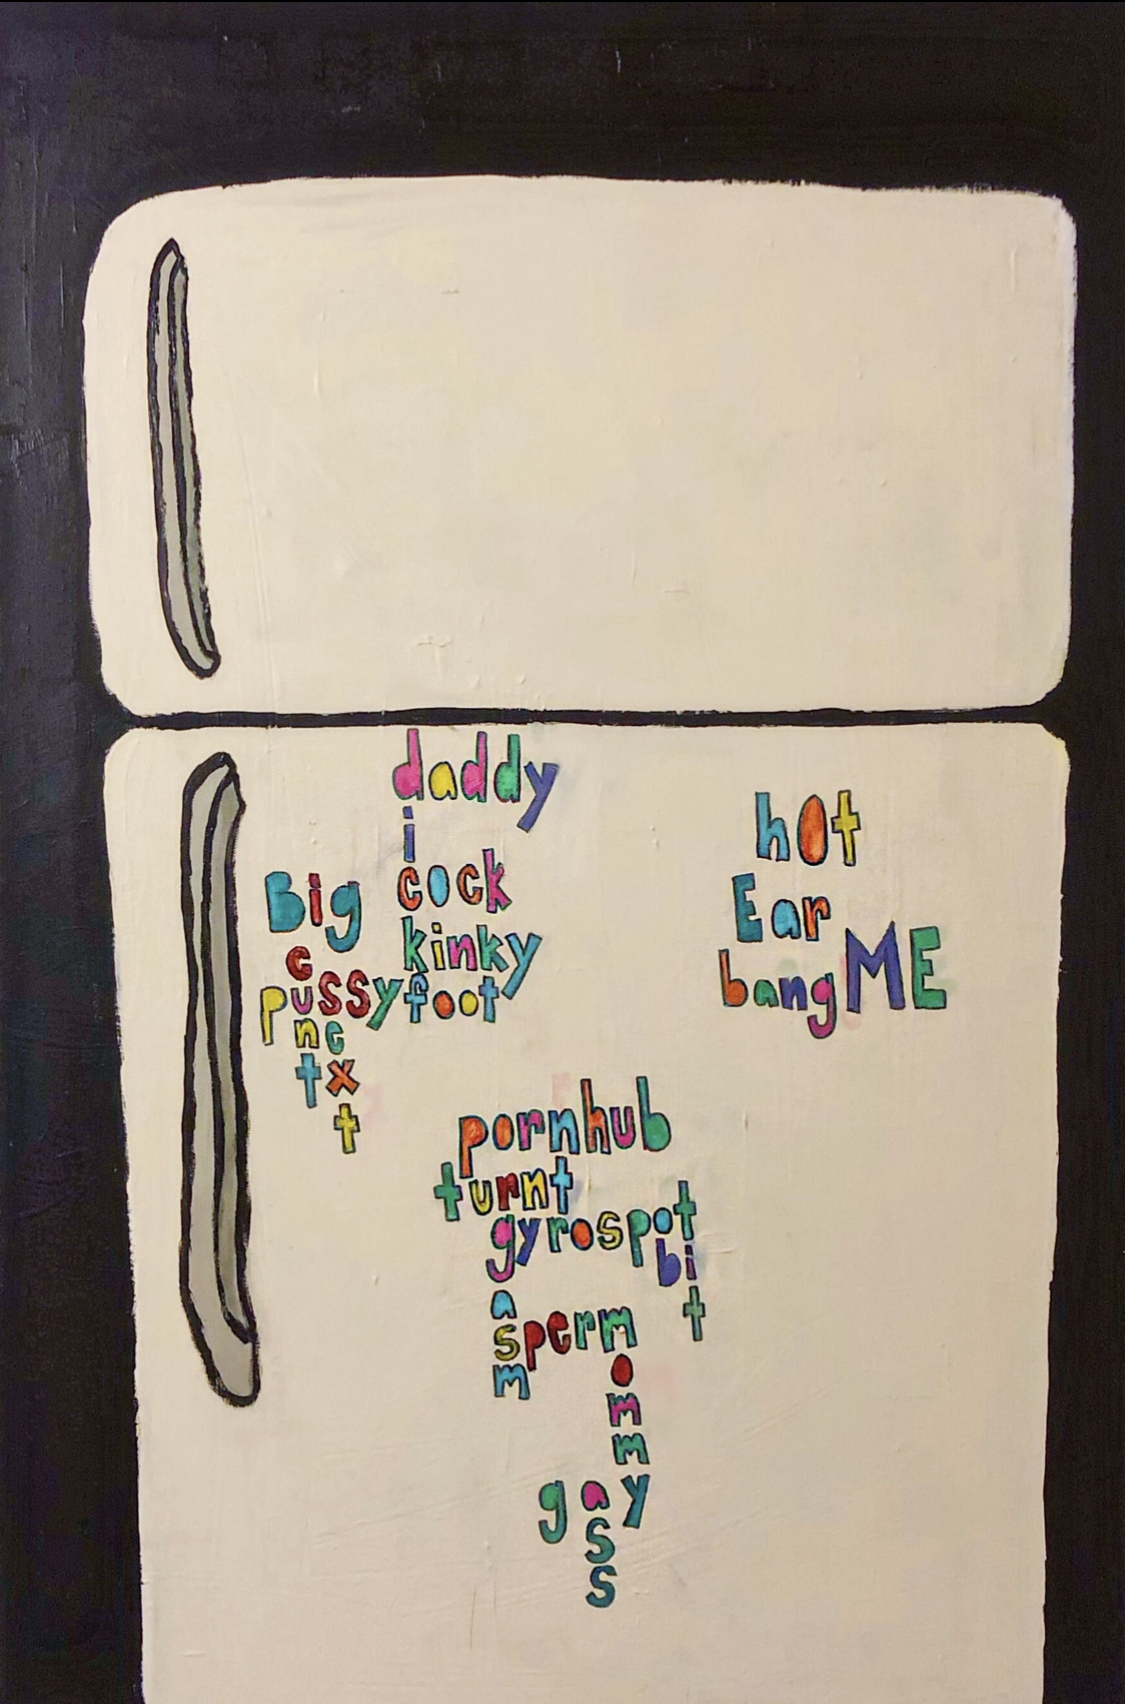 daddy
i
cock
Big
kinky
c
pussyfoot
ne
tx
t
hot
Ear
bang ME
pornhub
turnt
gyrospot
bi
a
t
sperm
m
o
m
m
gay
s
s